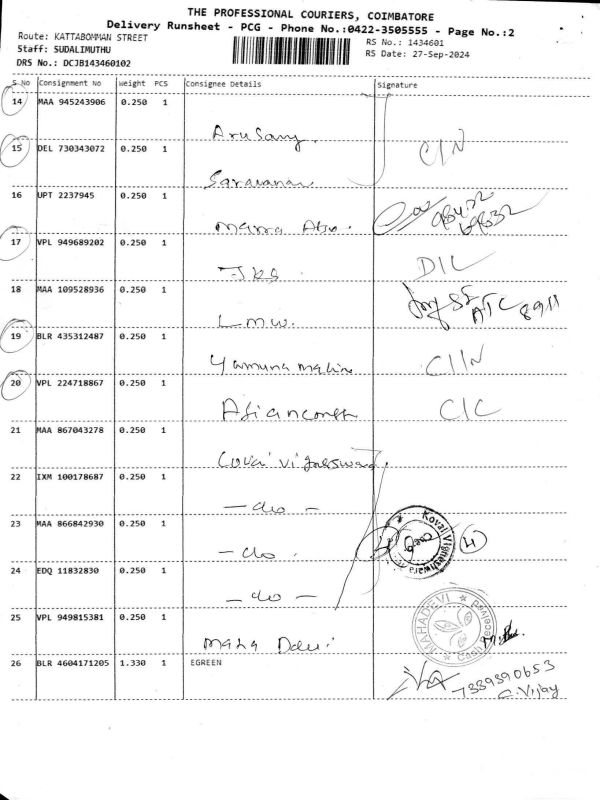 THE PROFESSIONAL COURIERS, COIMBATORE
Delivery Runsheet - PCG - Phone No.:0422-3505555 - Page No.:2
Route: KATTABOMMAN STREET
RS No.: 1434601
Staff: SUDALIMUTHU
RS Date: 27-Sep-2024
DRS No.: DCJB143460102
S No Consignment No Weight PCS Consignee Details Signature
14 MAA 945243906 0.250 1
15 DEL 730343072 0.250 1
C/N
Saravanan
16 UPT 2237945 0.250 1
98432
69832
17 VPL 949689202 0.250 1
JKS
D/L
18 MAA 109528936 0.250 1
ATC 8911
LMW.
19 BLR 435312487 0.250 1
Yamuna
20 VPL 224718867 0.250 1
C/C
21 MAA 867043278 0.250 1
Covai
22 IXM 100178687 0.250 1
- do -
23 MAA 866842930 0.250 1
Kovai Vigneshwara
4
- do -
24 EDQ 11832830 0.250 1
- do -
25 VPL 949815381 0.250 1
MAHADEVI
Cash Received
Maha Devi
26 BLR 4604171205 1.330 1 EGREEN
7339390653
C. Vijay